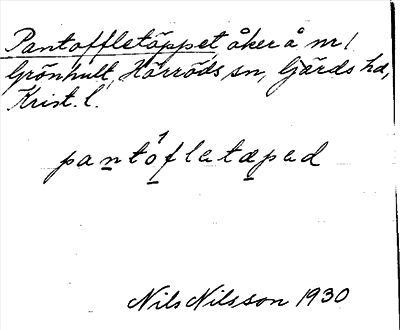 Pantoffletäppet åker å n 1
Grönhult, Hörröds sn, Gärds hd,
Krist. l.
pantofletæped
Nils Nilsson 1930